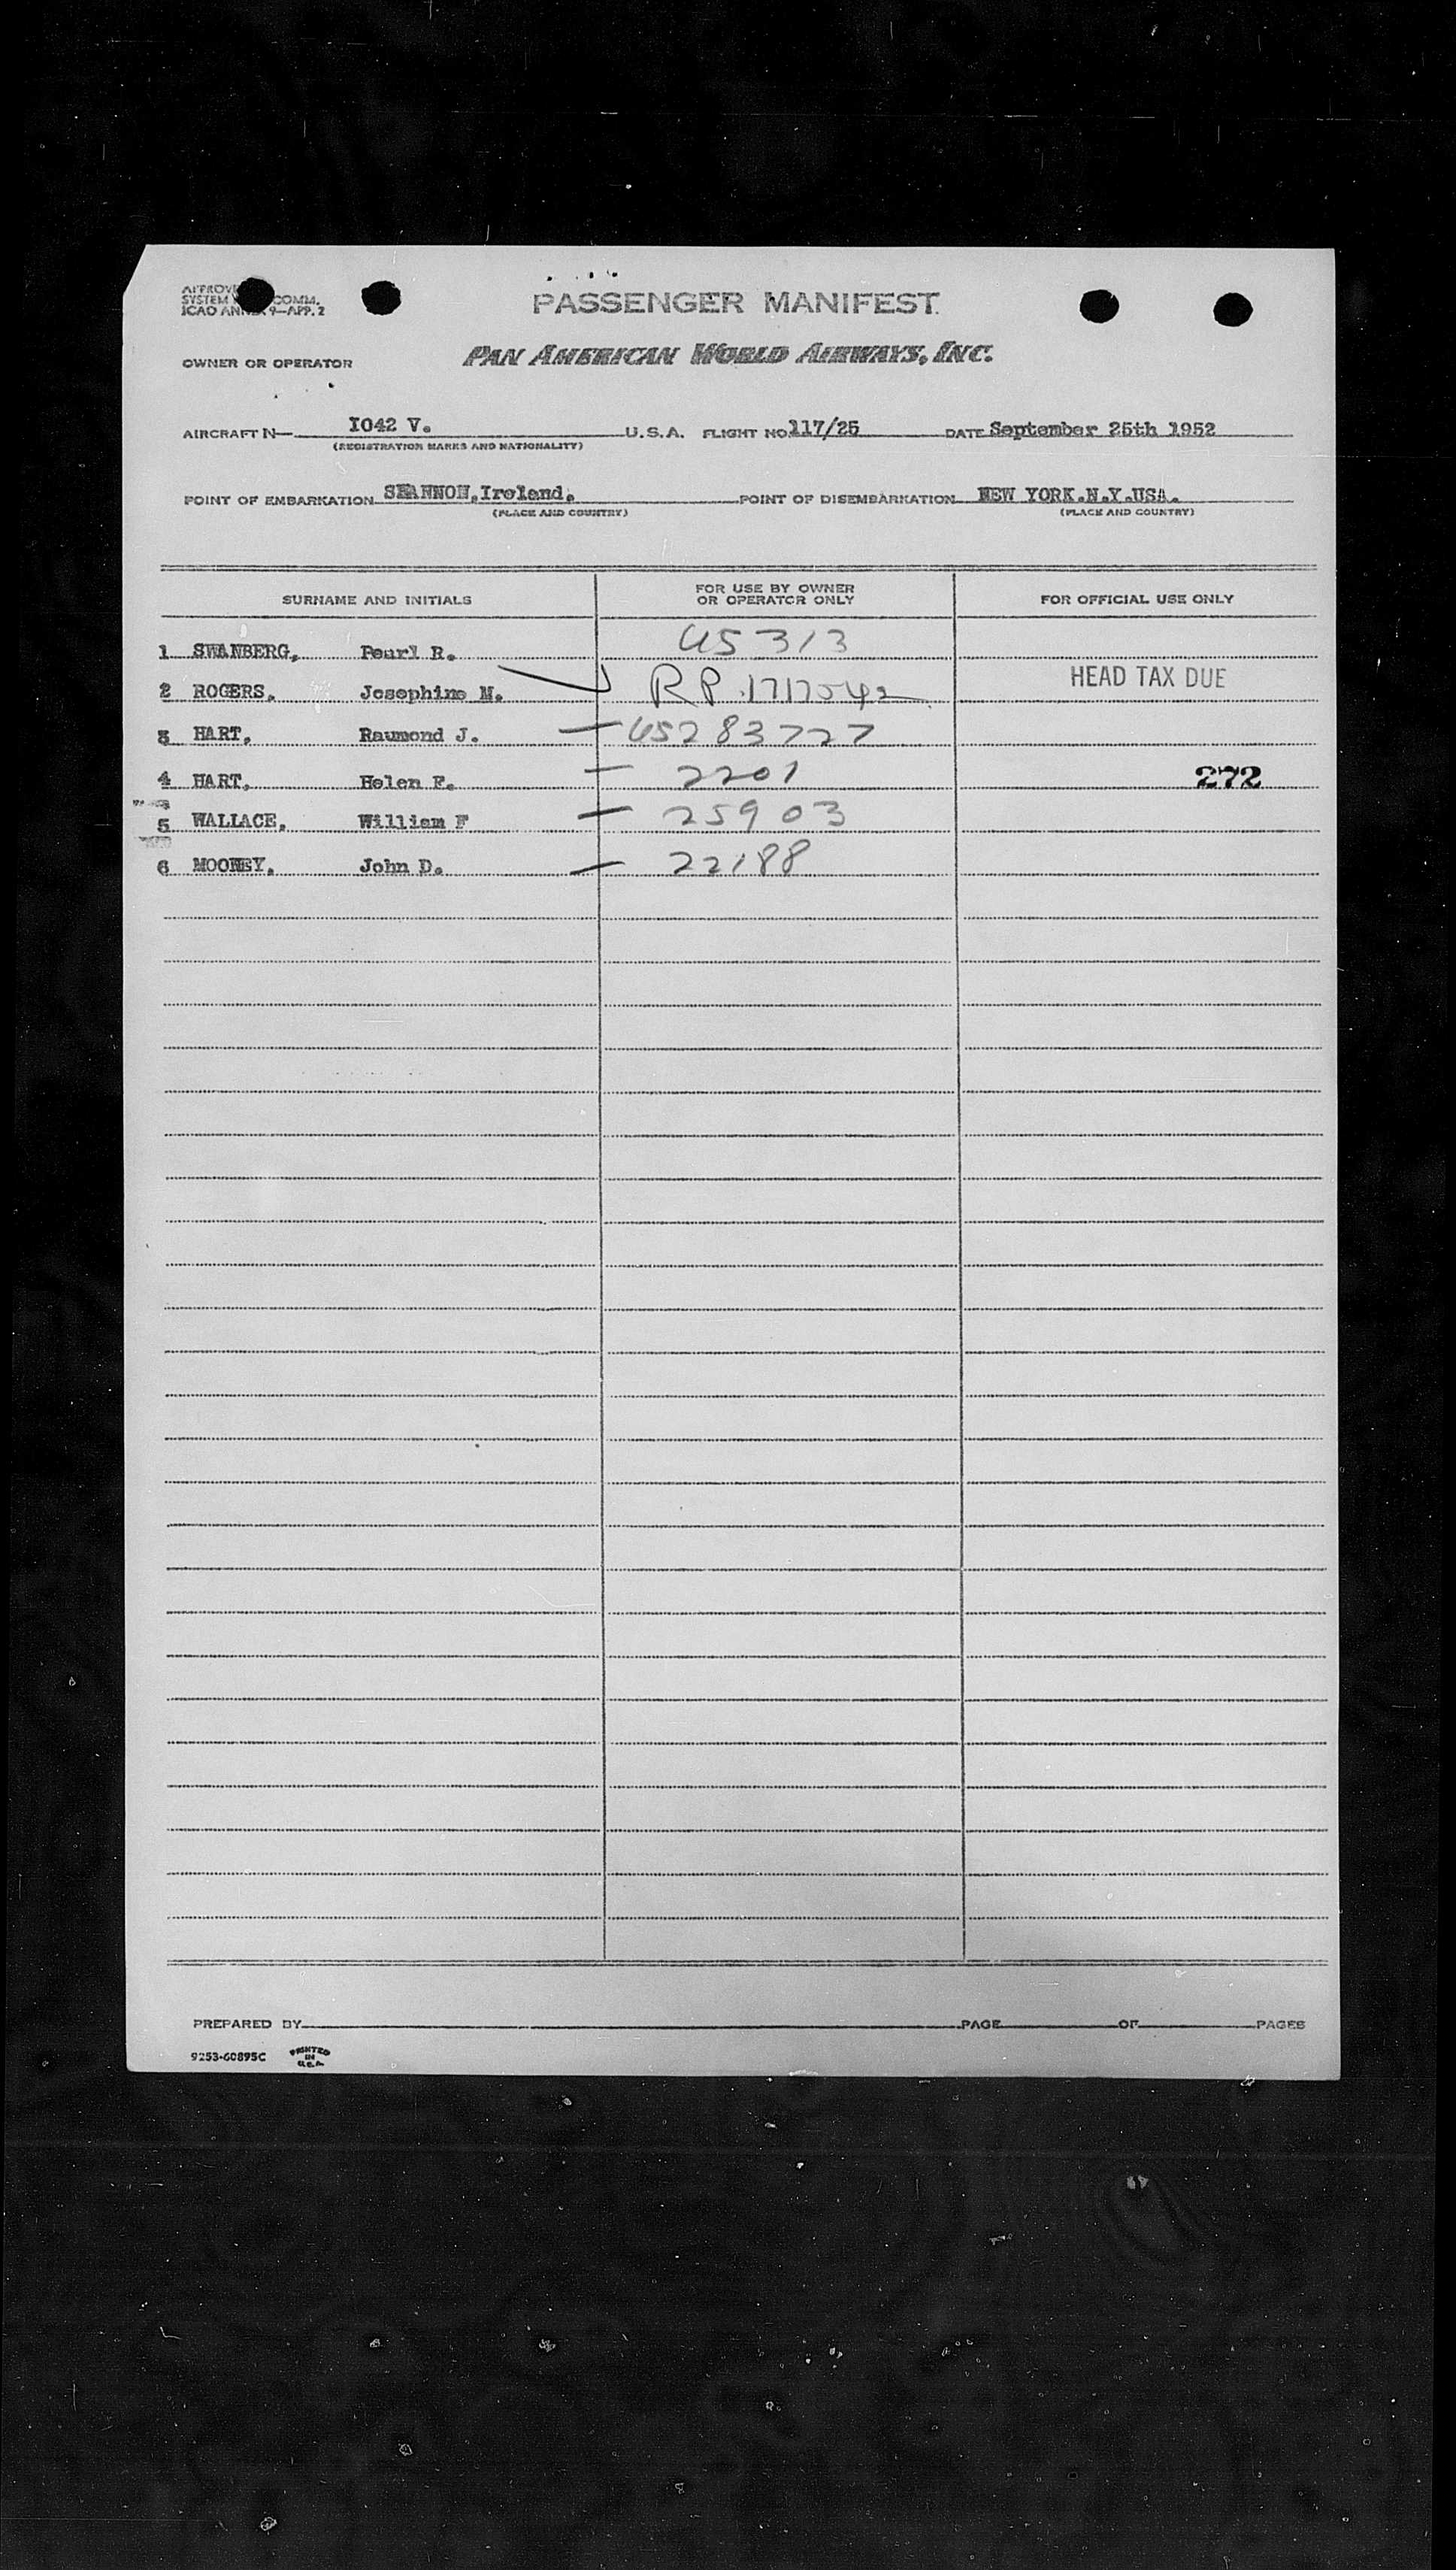 APPROVE
SYSTEM COMM.
ICAO ANN 9—APP. 2
PASSENGER MANIFEST
OWNER OR OPERATOR PAN AMERICAN WORLD AIRWAYS, INC.
AIRCRAFT N— I042 V. U.S.A. FLIGHT NO 117/25 DATE September 25th 1952
(REGISTRATION MARKS AND NATIONALITY)
POINT OF EMBARKATION SHANNON,Ireland. POINT OF DISEMBARKATION NEW YORK.N.Y.USA.
(PLACE AND COUNTRY) (PLACE AND COUNTRY)
SURNAME AND INITIALS FOR USE BY OWNER OR OPERATOR ONLY FOR OFFICIAL USE ONLY
1 SWANBERG, Pearl R. US 313
2 ROGERS, Josephine M. RP 1717542 HEAD TAX DUE
3 HART, Raumond J. — US283727
4 HART, Helen F. — 2201 272
5 WALLACE, William F — 25903
6 MOONEY, John D. — 22188
PREPARED BY PAGE OF PAGES
9253-60895C PRINTED IN U.S.A.